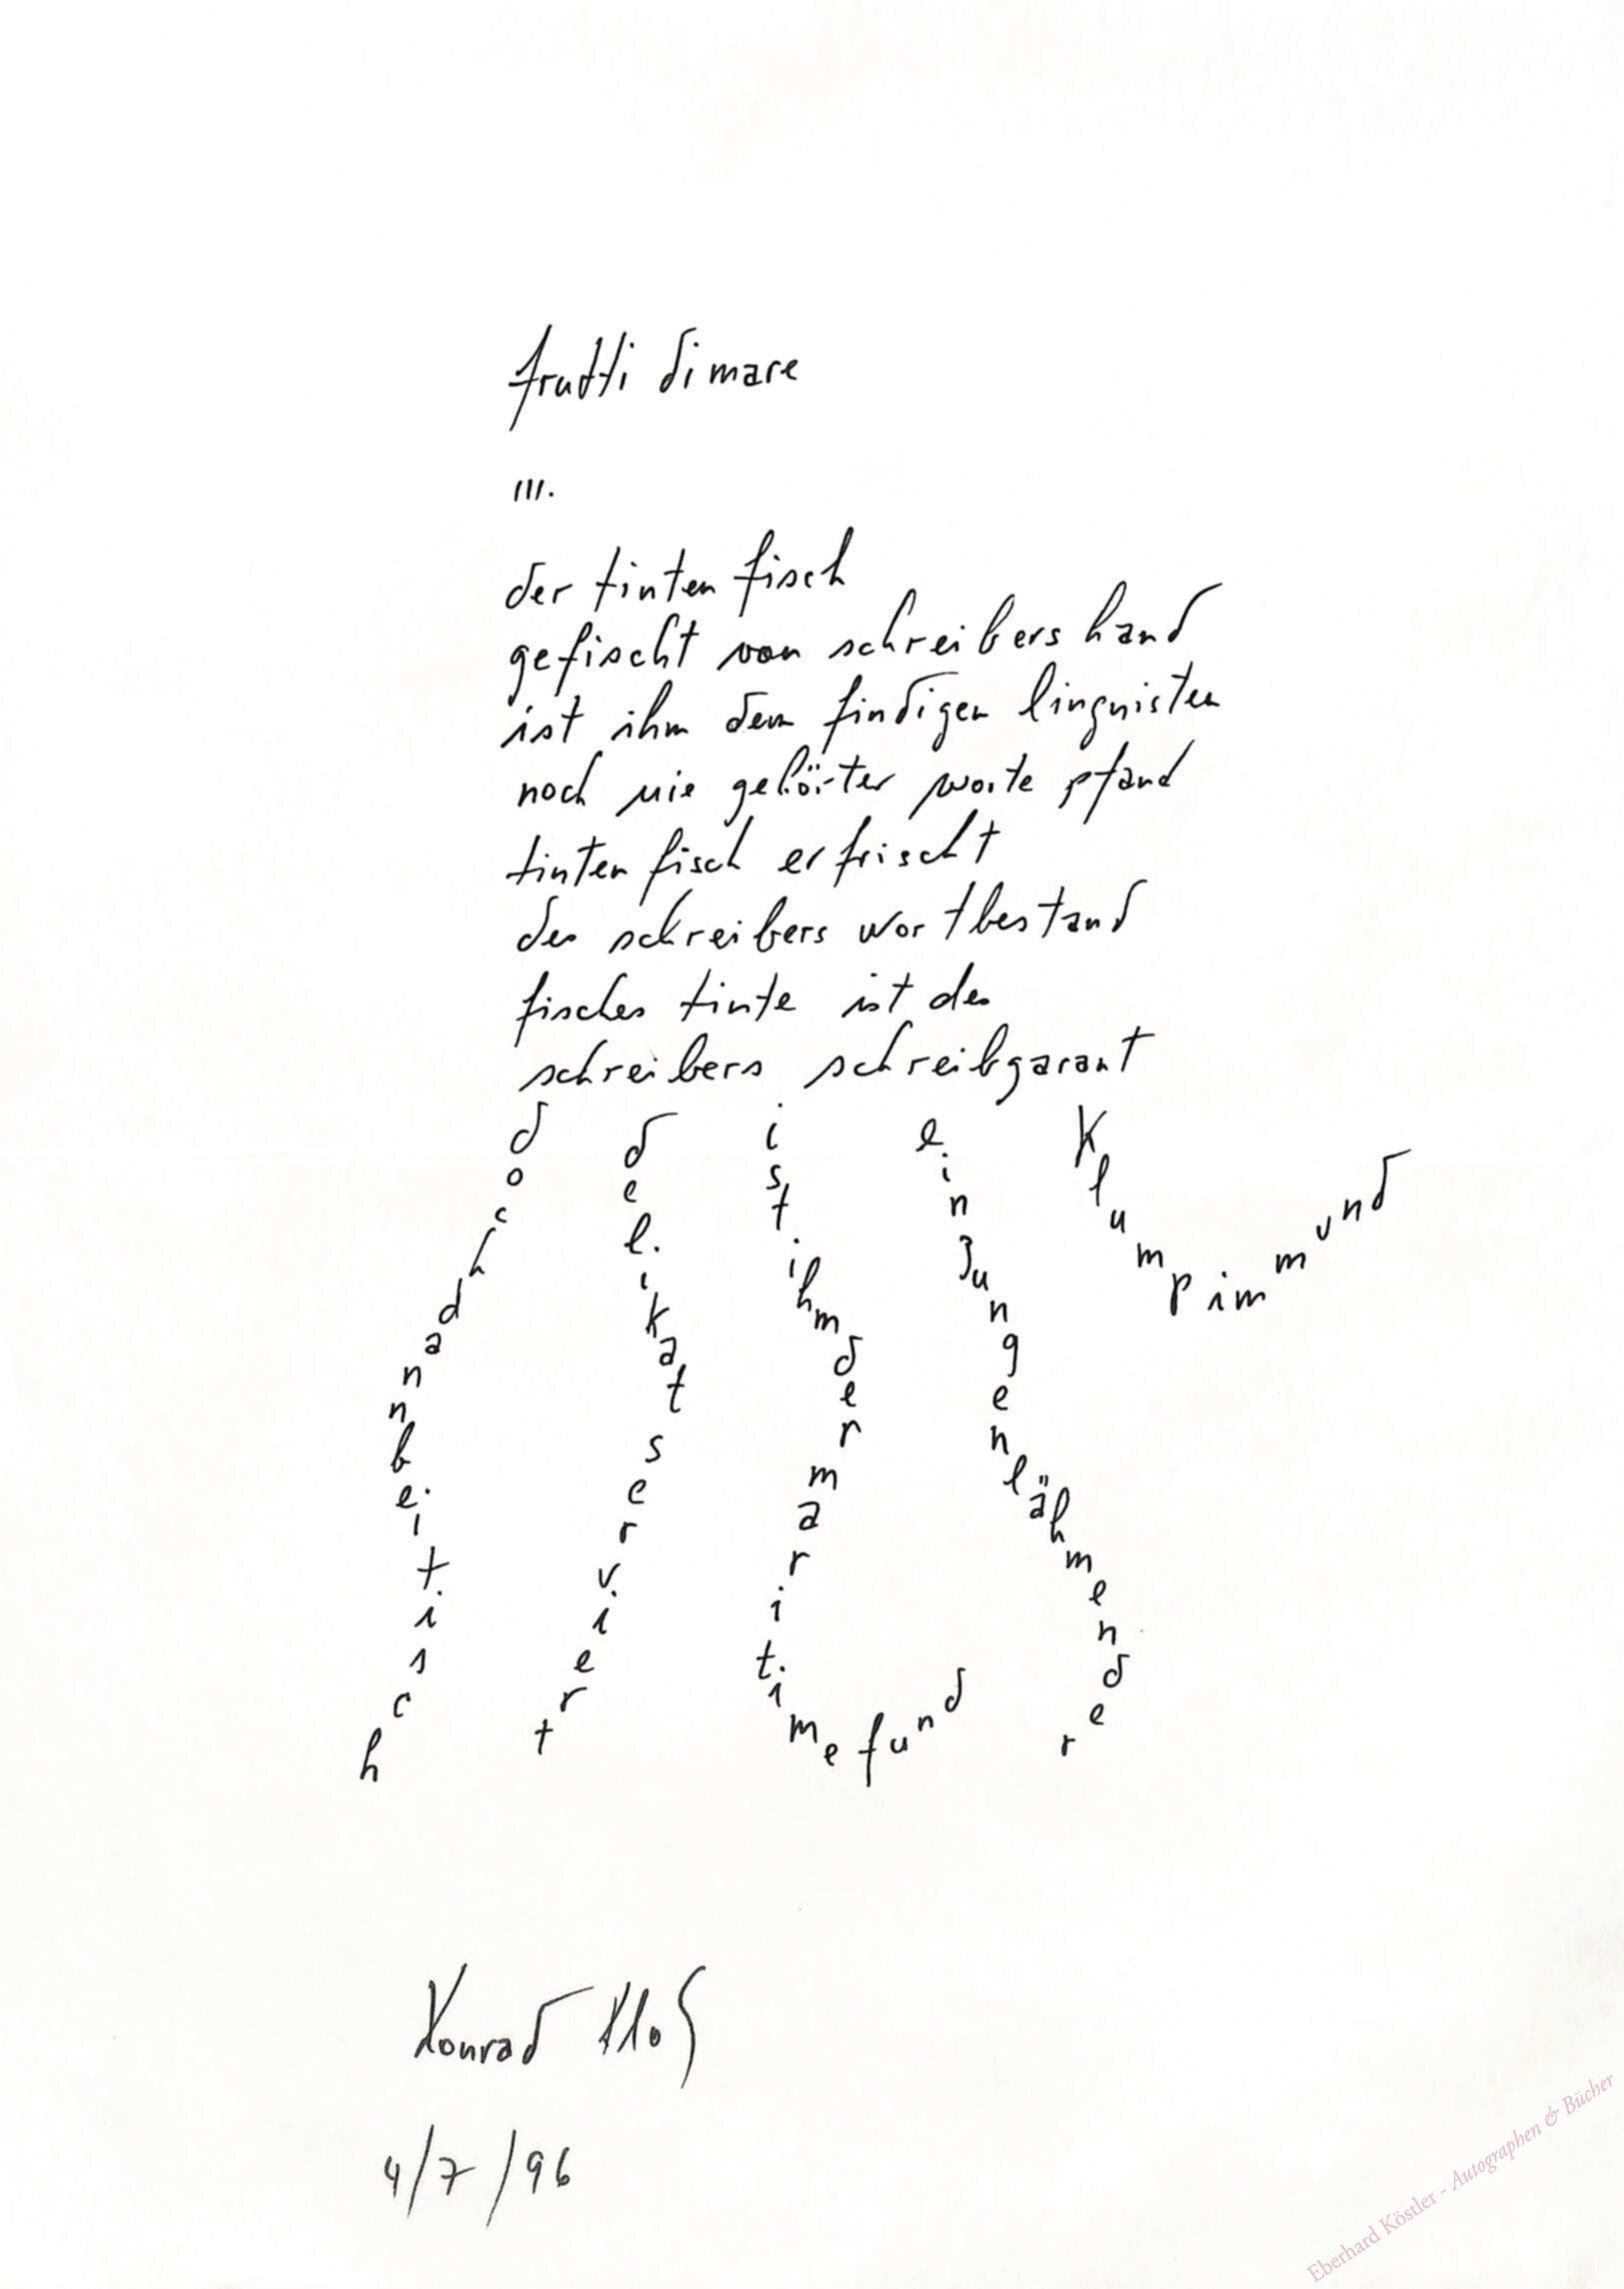 frutti di mare
III.
der tinten fisch
gefischt von schreibers hand
ist ihm dem findigen linguisten
noch nie gehörter worte pfand
tinten fisch erfrischt
des schreibers wortbestand
fisches tinte ist des
schreibers schreibgarant
dochdannbeitisch
delikatserviert
istihmdermaritimefund
einzungenlähmender
klumpimmund
Konrad
4/7/96
Eberhard Köstler - Autographen & Bücher